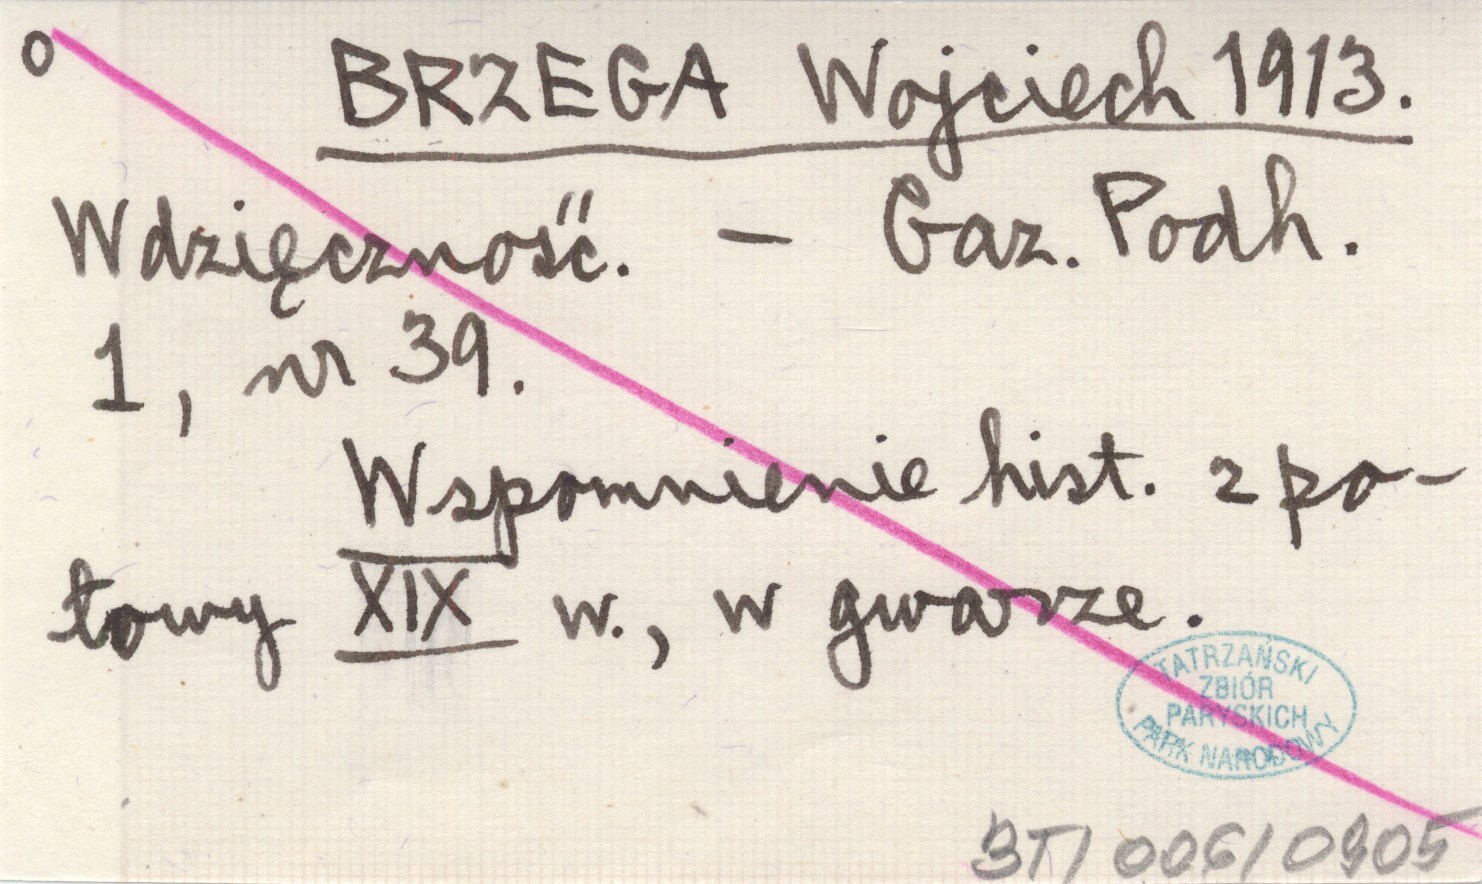 o
BRZEGA Wojciech 1913.
Wdzięczność. — Gaz. Podh.
1, nr 39.
Wspomnienie hist. z po-
łowy XIX w., w gwarze.
TATRZAŃSKI
ZBIÓR
PARYSKICH
PARK NARODOWY
BT/006/0905